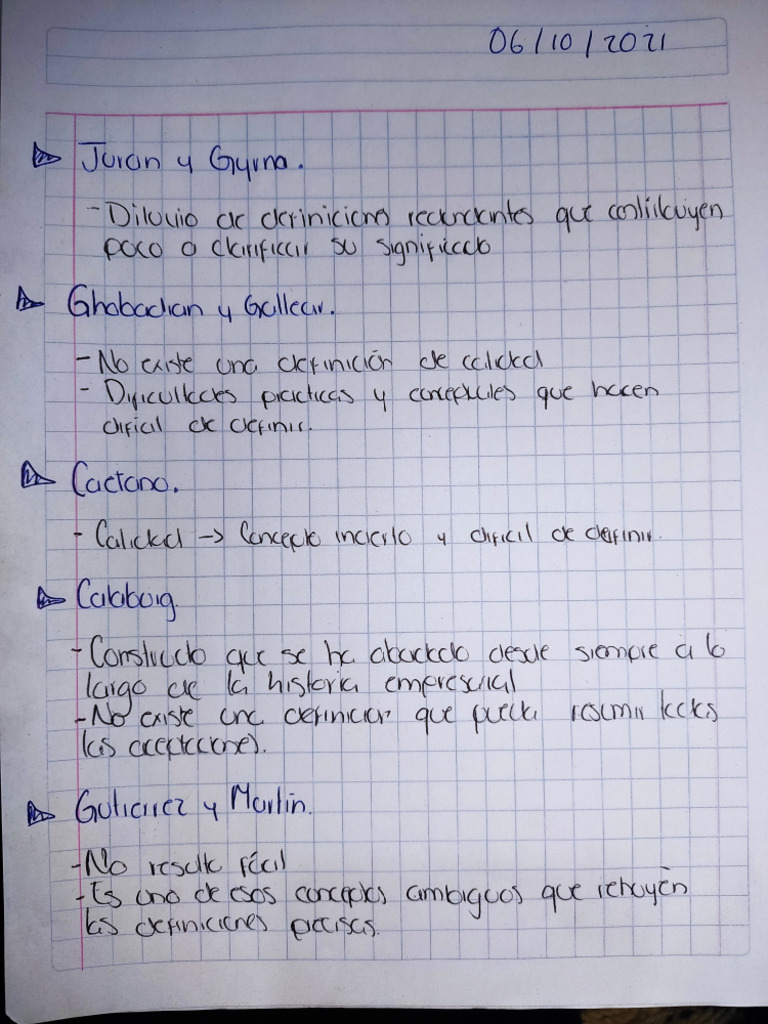 06/10/2021
Juran y Gyrna.
- Diluvio de definiciones redundantes que contribuyen
poco a clarificar su significado
Ghobadian y Gallear.
- No existe una definición de calidad
- Dificultades practicas y conceptuales que hacen
dificil de definir.
Caetano.
- Calidad → Concepto incierto y dificil de definir.
Calabuig.
- Constructo que se ha abordado desde siempre a lo
largo de la historia empresarial
- No existe una definición que pueda resumir todas
las acepciones.
Gutierrez y Martin.
- No resulta fácil
- Es uno de esos conceptos ambiguos que rehuyen
las definiciones precisas.